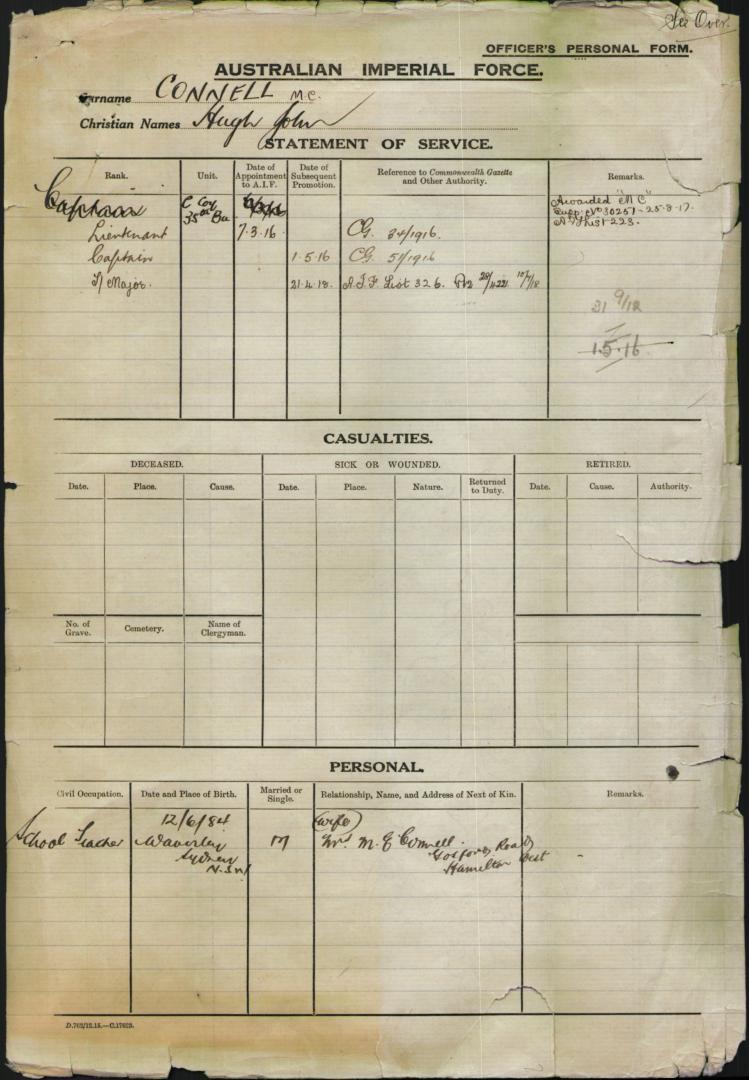 See Over.
OFFICER'S PERSONAL FORM.
AUSTRALIAN IMPERIAL FORCE.
Surname CONNELL M.C.
Christian Names Hugh John
STATEMENT OF SERVICE.
Rank. Unit. Date of Appointment to A.I.F. Date of Subsequent Promotion. Reference to Commonwealth Gazette and Other Authority. Remarks.
Captain C Coy 35th Bn Awarded "MC"
Supp: No 30251 - 25-8-17.
List 223.
Lieutenant 7.3.16 CG. 34/1916.
Captain 1.5.16 CG. 51/1916
T/ Major. 21.4.18. A.I.F. List 326.
31 9/18
1.5.16
CASUALTIES.
DECEASED. SICK OR WOUNDED. RETIRED.
Date. Place. Cause. Date. Place. Nature. Returned to Duty. Date. Cause. Authority.
No. of Grave. Cemetery. Name of Clergyman.
PERSONAL.
Civil Occupation. Date and Place of Birth. Married or Single. Relationship, Name, and Address of Next of Kin. Remarks.
12/6/84 (Wife)
School Teacher Waverley M Mrs M. E Connell.
Sydney Gosford Road
N.S.W Hamilton West
D.762/12.15.—C.17623.